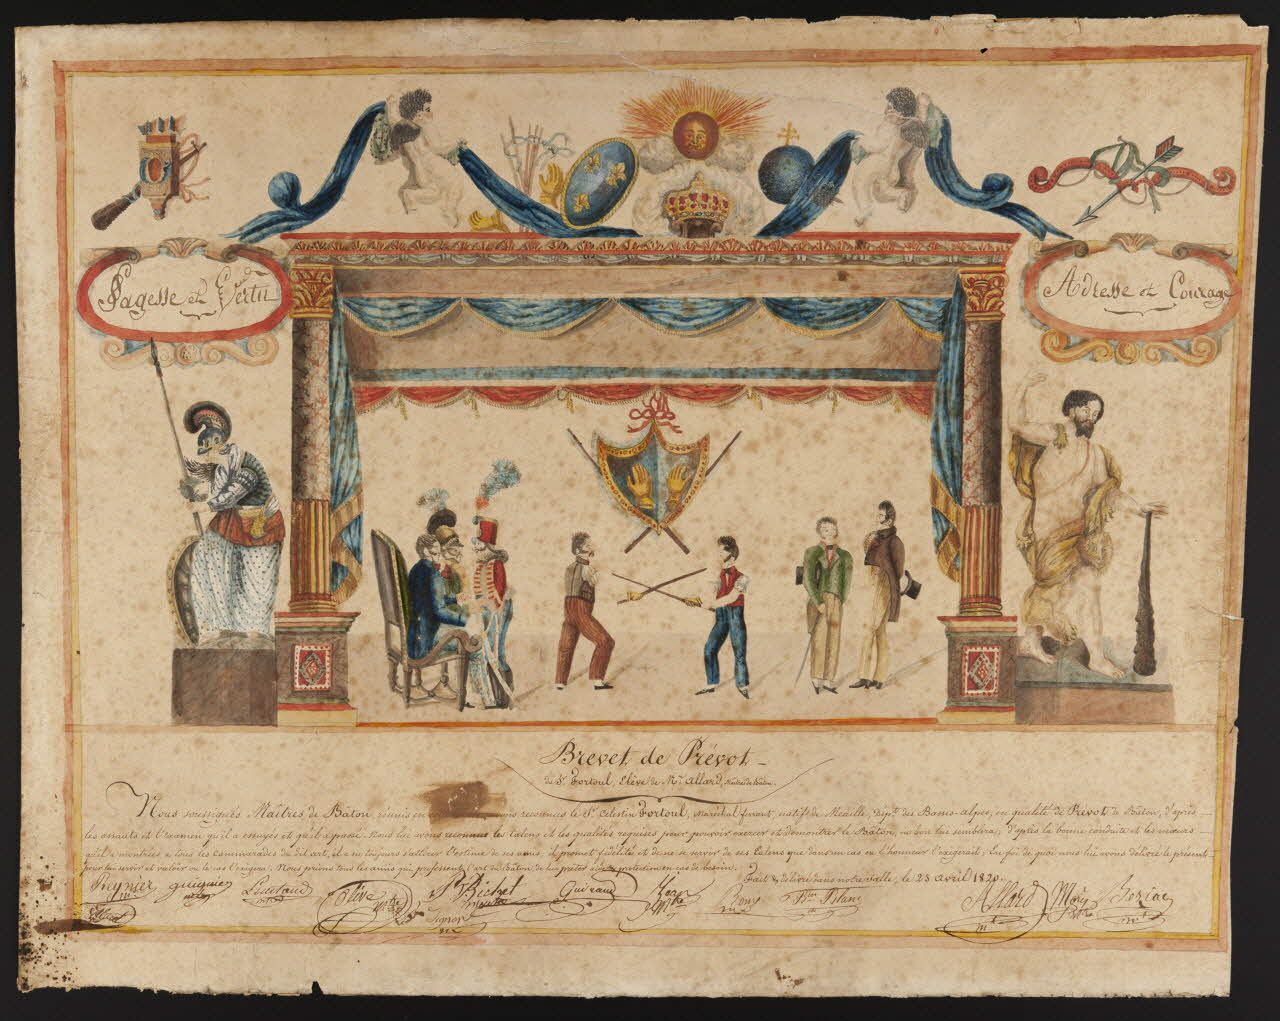 Sagesse et Vertu
Adresse et Courage
Brevet de Prévot
du Sr. Fortoul, Elève de Mr. Allard, Maître de Bâton.
Nous soussignés Maîtres de Bâton, réunis en reconnus le Sr. Celestin Fortoul, Maréchal ferrant, natif de Meaille, dépt. des Basses-alpes, en qualité de Prévot de Bâton, d'après
les assauts et l'examen qu'il a essuyés et qu'il a passé. Nous lui avons reconnus les talens et les qualités requises pour pouvoir exercer et démontrer le Bâton, où bon lui semblera; d'après la bonne conduite et les mœurs
qu'il a montrées a tous les Cammarades du dit art, il a su toujours s'attirer l'estime de ses amis. il promet fidélité et de ne se servir de ses talens que dans un cas où l'honneur l'exigerait. En foi de quoi nous lui avons délivré le présent
pour lui servir et valoir où le cas l'exigera. Nous prions tous les amis qui professent l'art du Bâton de lui prêter aide et protection en cas de besoin.
Fait & délivré dans notre salle, le 23 avril 1820
Reynier Lieutaud Olive Michel Guiraud Jean Blanc Allard